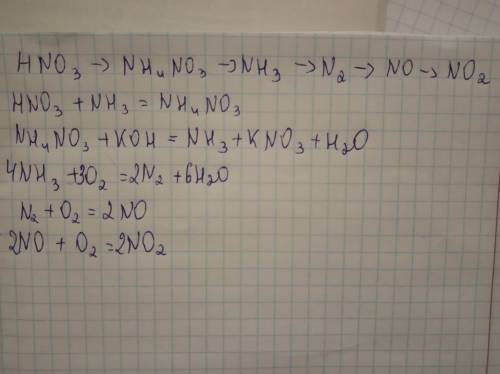 HNO₃ → NH₄NO₃ → NH₃ → N₂ → NO → NO₂
HNO₃ + NH₃ = NH₄NO₃
NH₄NO₃ + KOH = NH₃ + KNO₃ + H₂O
4NH₃ + 3O₂ = 2N₂ + 6H₂O
N₂ + O₂ = 2NO
2NO + O₂ = 2NO₂